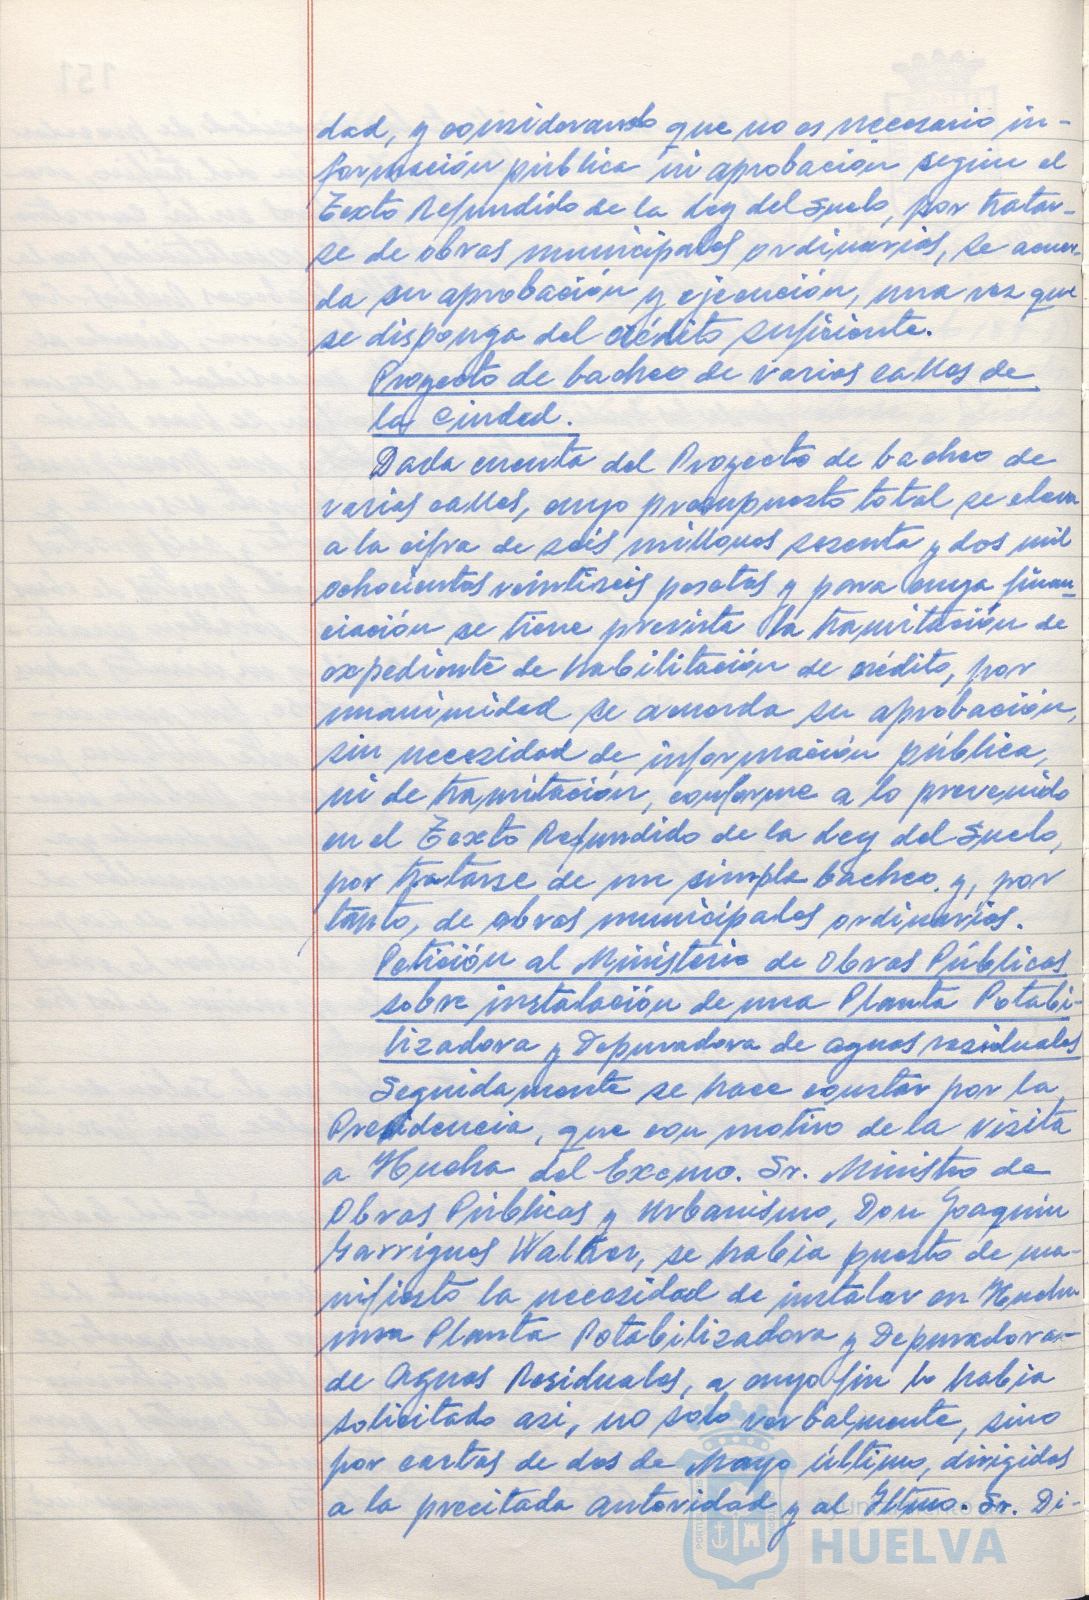 dad, y considerando que no es necesario in-
formación pública ni aprobación según el
Texto Refundido de la Ley del Suelo, por tratar-
se de obras municipales ordinarias, se acuer-
da su aprobación y ejecución, una vez que
se disponga del crédito suficiente.
Proyecto de bacheo de varias calles de
la Ciudad.
Dada cuenta del Proyecto de bacheo de
varias calles, cuyo presupuesto total se eleva
a la cifra de seis millones sesenta y dos mil
ochocientas veintiseis pesetas y para cuya finan-
ciación se tiene prevista la tramitación de
expediente de habilitación de crédito, por
unanimidad se acuerda su aprobación,
sin necesidad de información pública,
ni de tramitación, conforme a lo prevenido
en el Texto Refundido de la Ley del Suelo,
por tratarse de un simple bacheo y, por
tanto, de obras municipales ordinarias.
Petición al Ministerio de Obras Públicas
sobre instalación de una Planta Potabi-
lizadora y Depuradora de aguas residuales
Seguidamente se hace constar por la
Presidencia, que con motivo de la visita
a Huelva del Excmo. Sr. Ministro de
Obras Públicas y Urbanismo, Don Joaquín
Garrigues Walker, se había puesto de ma-
nifiesto la necesidad de instalar en Huelva
una Planta Potabilizadora y Depuradora
de Aguas Residuales, a cuyo fin lo había
solicitado así, no solo verbalmente, sino
por cartas de dos de Mayo último, dirigidas
a la precitada autoridad y al Iltmo. Sr. Di-
HUELVA